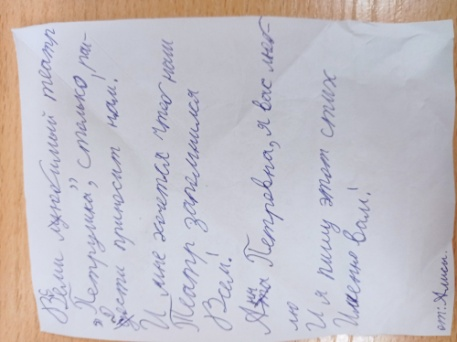 Всеми любимый театр
„Петрушка", столько ра-
дости приносит нам!
И мне хочется чтоб наш
Театр запомнился
Всем!
Анна Петровна, я вас люб-
лю
И я пишу этот стих
Именно вам!
от: Алисы.